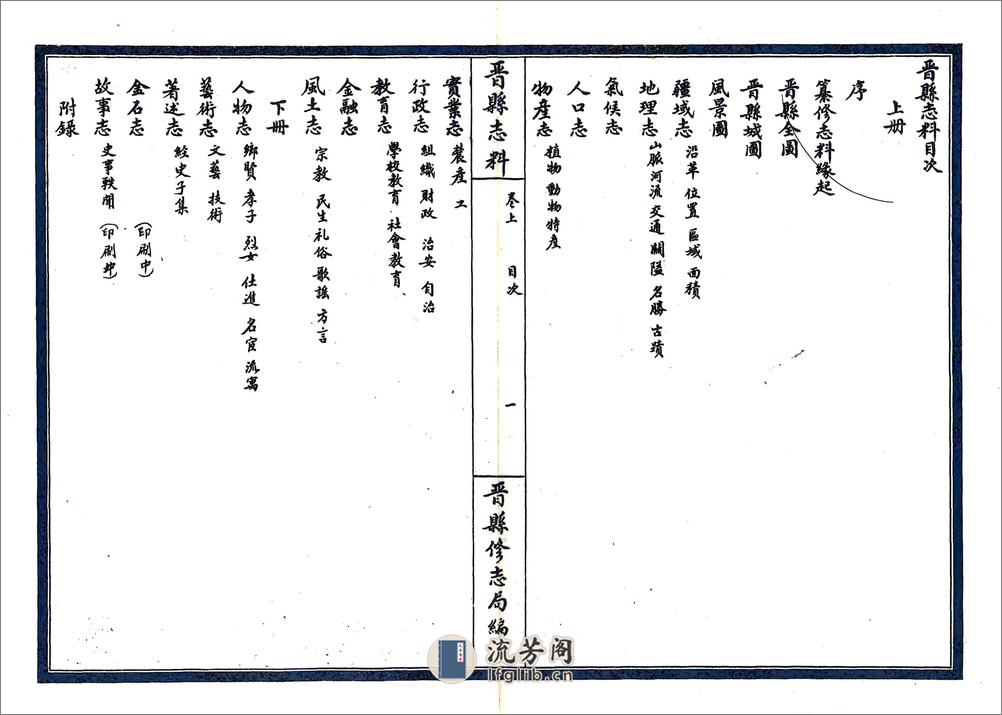 晉縣志料目次
上册
序
纂修志料緣起
晉縣全圖
晉縣城圖
風景圖
疆域志 沿革 位置 區域 面積
地理志 山脈河流 交通 關隘 名勝 古蹟
氣候志
人口志
物產志 植物 動物 特產
晉縣志料
卷上 目次 一
晉縣修志局編
實業志 農產 工
行政志 組織 財政 治安 自治
教育志 學校教育 社會教育
金融志
風土志 宗教 民生 礼俗 歌謠 方言
下册
人物志 鄉賢 孝子 烈女 仕進 名宦 流寓
藝術志 文藝 技術
著述志 經史子集
金石志 (印刷中)
故事志 史事軼聞 (印刷中)
附錄
流芳阁
lfglib.cn